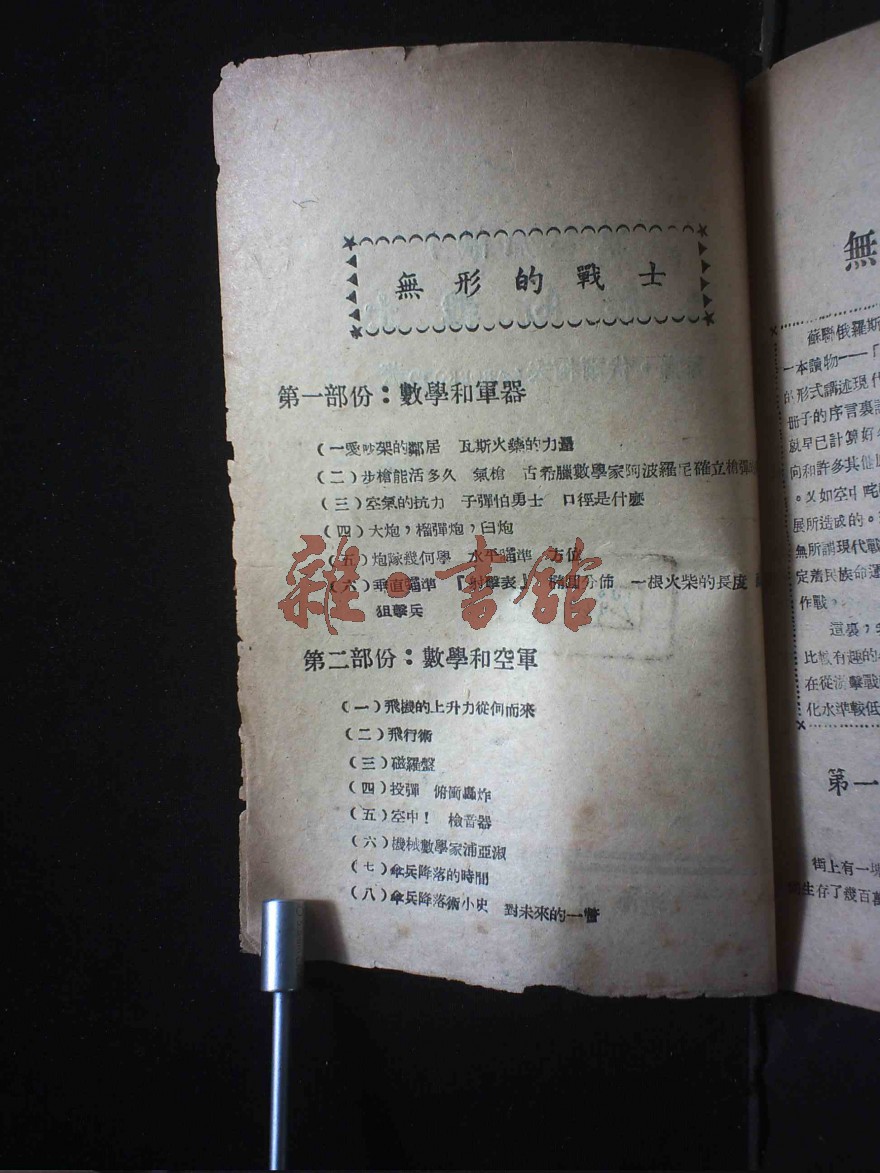 無形的戰士
第一部份：數學和軍器
（一愛吵架的鄰居　瓦斯火藥的力量
（二）步槍能活多久　氣槍　古希臘數學家阿波羅尼確立槍彈
（三）空氣的抗力　子彈怕勇士　口徑是什麼
（四）大炮，榴彈炮，臼炮
（五）炮隊幾何學　水平瞄準　方位
（六）垂直瞄準　『射擊表』　橢圓分佈　一根火柴的長度
狙擊兵
第二部份：數學和空軍
（一）飛機的上升力從何而來
（二）飛行術
（三）磁羅盤
（四）投彈　俯衝轟炸
（五）空中！　檢音器
（六）機械數學家浦亞淑
（七）傘兵降落的時間
（八）傘兵降落術小史　對未來的一瞥
雜·書館
無
蘇聯俄羅斯
一本讀物——「
的形式講述現代
冊子的序言裏說
就早已計算好
向和許多其他
。又如空中
展所造成的。
無所謂現代戰
定着民族命運
作戰。
這裏，
比較有趣的
在從游擊戰
化水準較低
第一
街上有一
生存了幾百萬